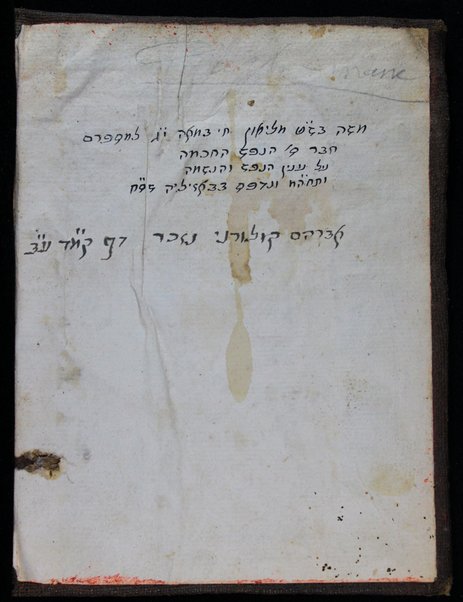 משה בש״ט מליאון חי במאה י״ג למספרם
חבר ס׳ הנפש החכמה
על ענין הנפש והנשמה
ותחה״מ ונדפס בבאזיליה שס״ח
אברהם קולורני נזכר דף קמ״ד ע״ב